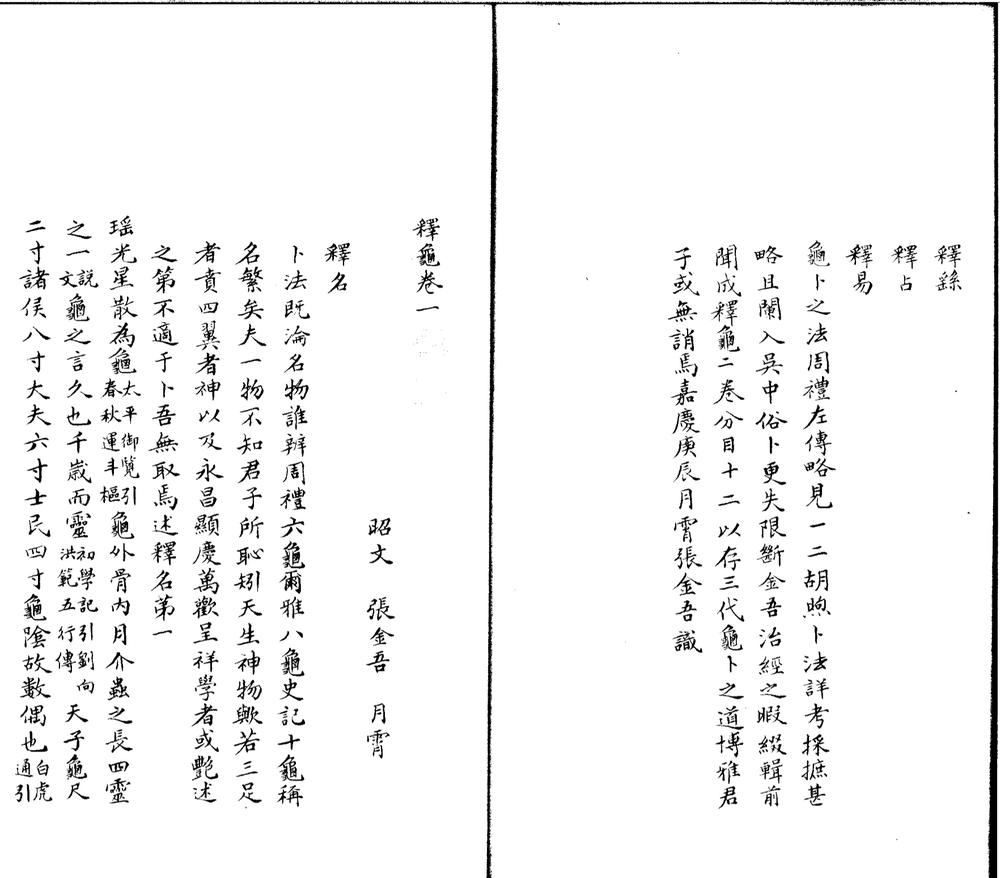 釋繇
釋占
釋易
龜卜之法周禮左傳略見一二胡煦卜法詳考採摭甚
略且闌入吳中俗卜更失限斷金吾治經之暇綴輯前
聞成釋龜二卷分目十二以存三代龜卜之道博雅君
子或無誚焉嘉慶庚辰月霄張金吾識
釋龜卷一
昭文　張金吾　月霄
釋名
卜法既淪名物誰辨周禮六龜爾雅八龜史記十龜稱
名繁矣夫一物不知君子所恥矧天生神物歟若三足
者賁四翼者神以及永昌顯慶萬歡呈祥學者或艷述
之第不適于卜吾無取焉述釋名苐一
瑶光星散為龜太平御覧引春秋運斗樞龜外骨內月介蟲之長四靈
之一説文龜之言久也千歲而靈初學記引劉向洪範五行傳天子龜尺
二寸諸侯八寸大夫六寸士民四寸龜陰故數偶也白虎通引